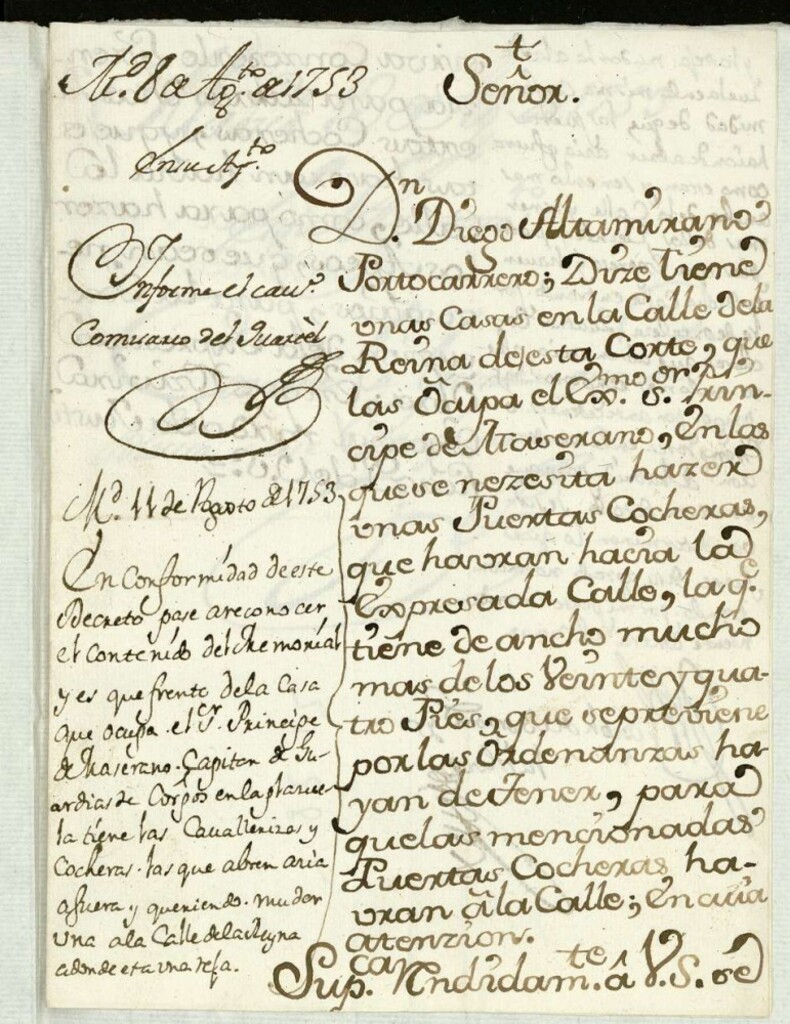 Md. 8 de Agto de 1753
en su Ayto.
Informe el cavo.
Comisario del Quartèl
Md. 11 de Agosto de 1753
En Conformidad de este
Decreto pase a reconocer
el Contenido del Memorial
y es que frente de la Casa
que ocupa el Sr. Principe
de Maserano Capitan de Gu-
ardias de Corpos en la plazue
la tiene las Cavallerizas y
Cocheras las que abren acia
afuera y queriendo mudar
una a la Calle de la Reyna
adonde eta una reja.
†
Señor.
Dn. Diego Altamirano
Portocarrero; Dize tiene
unas Casas en la Calle dela
Reina de esta Corte, que
las Ocupa el Exmo. Sor. Prin-
cipe de Maserano, en las
que se nezesita hazer
unas Puertas Cocheras,
que havran hacia la
expresada Calle, la qe.
tiene de ancho mucho
mas de los Veinte y qua-
tro Pies, que se previene
por las Ordenanzas ha-
yan de tener, para
que las mencionadas
Puertas Cocheras ha-
vran â la Calle; en cuia
atenzion.
Supca. Rendidamte. â V.S. se